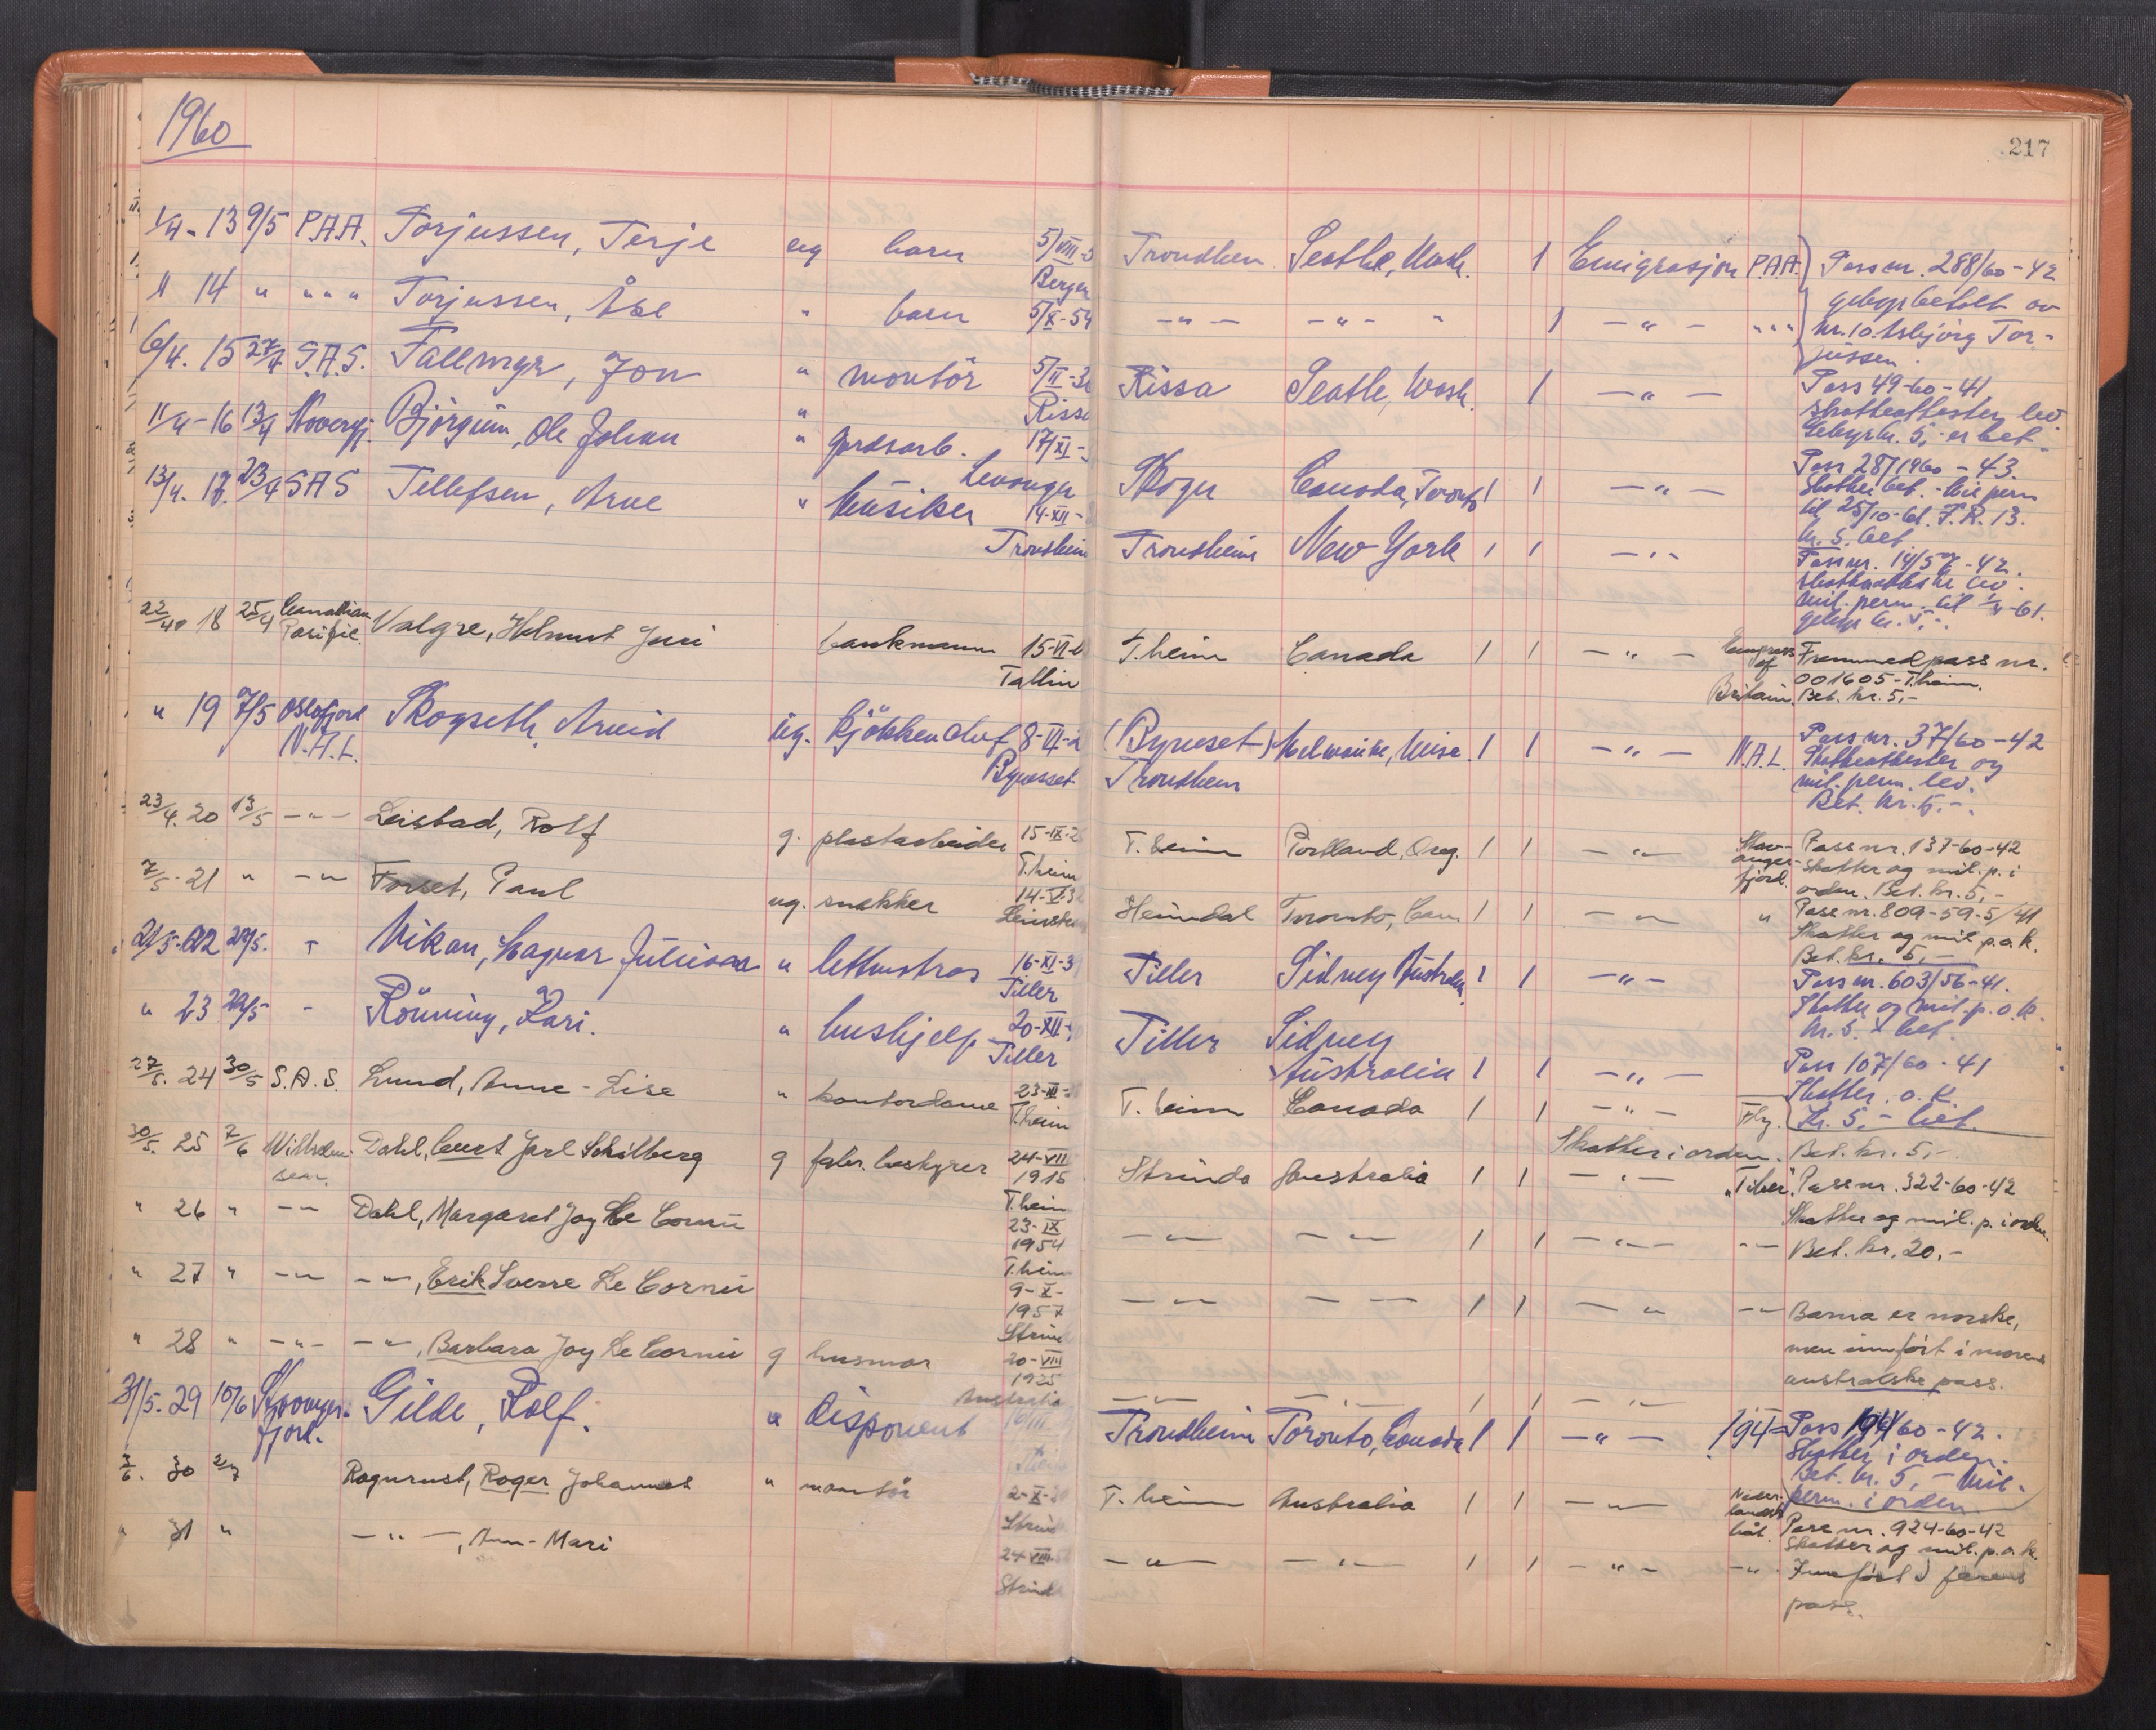 1960
217
1/4 - 13 9/5 P.A.A. Torjussen, Terje ug barn 5/VIII-5 Trondhem Seatle, Wash. 1 Emigrasjon P.A.A. Pass nr. 288/60-42
Bergen gebyr betalt av
" 14 " " " " Torjussen, Åse " barn 5/X-54 -"- -"- " 1 -"- " " " nr. 10 Asbjörg Tor-
jussen.
6/4. 15 27/4 S.A.S. Fallmyr, Jon " montör 5/II-3 Rissa Seatle, Wash. 1 -"- Pass 49-60-41
Rissa skatteattester lev.
Gebyr kr. 5,- er bet
11/4-16 13/4 Björgum, Ole Johan " gardsarb. 17/XI- Skogn Canada, Toronto 1 1 -"- Pass 287/1960-43.
Levanger Skatter bet. - Mil perm
til 25/10-61. F.R. 13.
kr. 5. bet
13/4. 17. 23/4 SAS Tellefsen, Arve " Musiker 14-XII- Trondheim New York 1 1 -"- Pass nr. 14/57-42.
Trondheim skatteatteste lev.
Mil. perm. til 1/4-61.
gebyr kr. 5,-.
22/4 18 25/4 Canadian Pasific Valgre, Helmut Juri bankmann 15-VI- T.heim Canada 1 1 -"- Empress of Britain Fremmedpass nr.
Tallin 001605-T.heim.
Bet. kr. 5,-
" 19 7/5 Oslofjord N.A.L. Skogseth, Arvid ug. kjökken 8-VI-2 (Byneset) Trondhem 1 1 -"- N.A.L. Pass nr. 37/60-42
Bynesset Skatteattester og
mil. perm. lev.
Bet. kr. 5,-.
23/4. 20 13/5 -"- Leistad, Rolf g. plastarbeider 15-IX-2 T.heim Portland, Oreg. 1 1 -"- Stav-anger-fjord. Pass nr. 137-60-42
T.heim skatter og mil. p. i
orden. Bet. kr. 5,-
7/5-21 " -"- Forset, Paul ug. snekker 14-V-32 Heimdal Toronto, Can. 1 1 -"- " Pass nr. 809-59-5/41
Skatter og mil p.o.k.
Bet. kr. 5,-
21/5-22 Vikan, Ragnar " 16-XI-3 Tiller Sidney Australia 1 1 -"- Pass nr. 603/56-41.
Tiller Skatter og mil-p.o.k.
kr. 5. bet.
" 23 - Rönning, Kari. " hushjelp 20-XII- Tiller Sidney Australia 1 1 -"- Pass 107/60-41
Tiller Skatter. o.k.
Kr. 5,- bet.
27/5. 24 30/5 S.A.S. Lund, Anne-Lise " kontordame 23-III- T.heim Canada 1 1 -"- Fly.
T.heim Skatter i orden. Bet. kr. 5,-
30/5. 25 7/6 Wilhelmsen. Dahl, Jarl Schilberg g fabr. bestyrer 24-VIII 1915 T.heim Strinda Australia 1 1 -"- "Tiber". Pass nr. 322-60-42
Skatter og mil. p. i orden.
" 26 " -"- Dahl, Margaret Joy Le Cornu 23-IX 1954 T.heim -"- -"- 1 1 -"- -"- Bet. kr. 20,-
" 27 " -"- -"-, Erik Sverre Le Cornu 9-X- 1957 Strind -"- -"- 1 1 -"- -"- Barna er norske,
men innfört i morens
" 28 " -"- -"-, Barbara Joy Le Cornu g husmor 20-VIII 1925 Australia -"- -"- 1 1 -"- australske pass.
31/5. 29 10/6 Stavanger-fjord. Gilde, Rolf. " Disponent 16/III Trondheim Toronto, Canada 1 1 -"- 194= Pass 194/60-42.
Skatter i orden.
Bet. kr. 5,- Mil.
perm. i orden
3/6. 30 2/7 Rognrust, Roger Johannes " montör 2-X- T.heim Australia 1 1 -"- Neder-landsk båt. Pass nr. 924-60-42
Strind Skatter og mil. p.o.k.
" 31 " -"-, Ann-Mari 24-VIII Strind -"- -"- 1 1 -"- -"- Innfört i farens
pass.